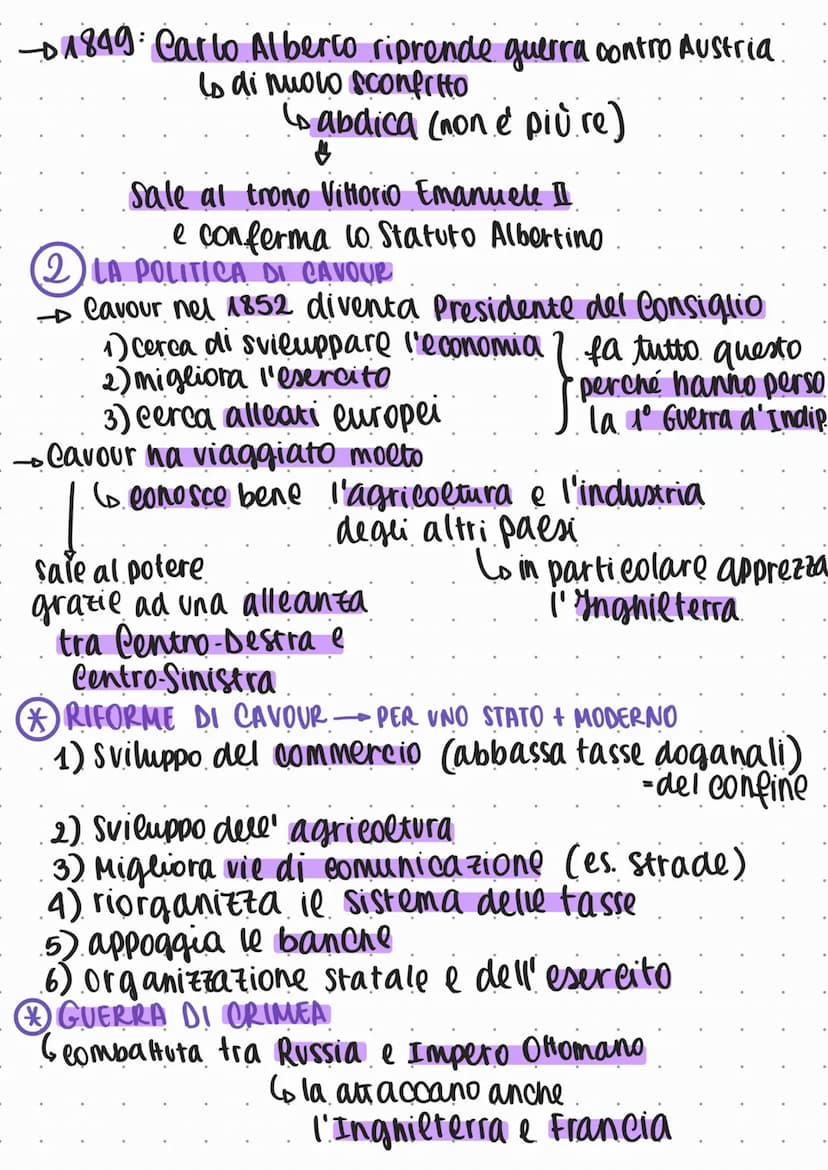 → 1849: Carlo Alberto riprende guerra contro Austria
↳ di nuovo sconfitto
↳ abdica (non è più re)
↓
Sale al trono Vittorio Emanuele II
e conferma lo Statuto Albertino
2 LA POLITICA DI CAVOUR
→ Cavour nel 1852 diventa Presidente del Consiglio
1) cerca di sviluppare l'economia } fa tutto questo
2) migliora l'esercito perché hanno perso
3) cerca alleati europei la 1° Guerra d'Indip.
→ Cavour ha viaggiato molto
↳ conosce bene l'agricoltura e l'industria
degli altri paesi
sale al potere ↳ in particolare apprezza
grazie ad una alleanza l'Inghilterra
tra Centro-Destra e
Centro-Sinistra
* RIFORME DI CAVOUR → PER UNO STATO + MODERNO
1) Sviluppo del commercio (abbassa tasse doganali)
=del confine
2) Sviluppo dell'agricoltura
3) Migliora vie di comunicazione (es. strade)
4) riorganizza il sistema delle tasse
5) appoggia le banche
6) organizzazione statale e dell'esercito
* GUERRA DI CRIMEA
↳ combattuta tra Russia e Impero Ottomano
↳ la attaccano anche
l'Inghilterra e Francia